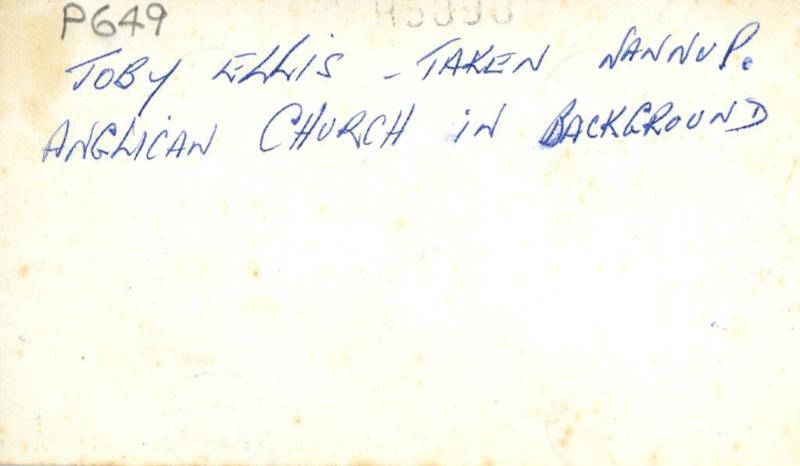 P649
TOBY ELLIS - TAKEN NANNUP.
ANGLICAN CHURCH IN BACKGROUND